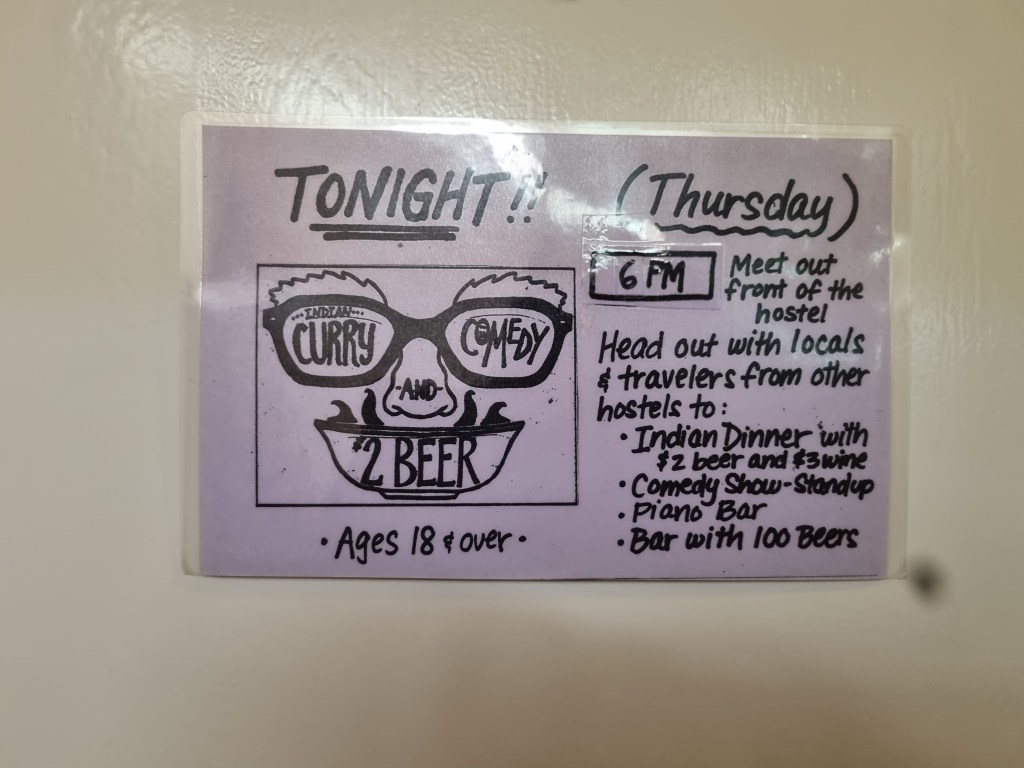 TONIGHT!!
(Thursday)
···INDIAN···
CURRY
COMEDY
-AND-
$2 BEER
• Ages 18 & over •
6 PM
Meet out
front of the
hostel
Head out with locals
& travelers from other
hostels to:
• Indian Dinner with
$2 beer and $3 wine
• Comedy Show-Standup
• Piano Bar
• Bar with 100 Beers